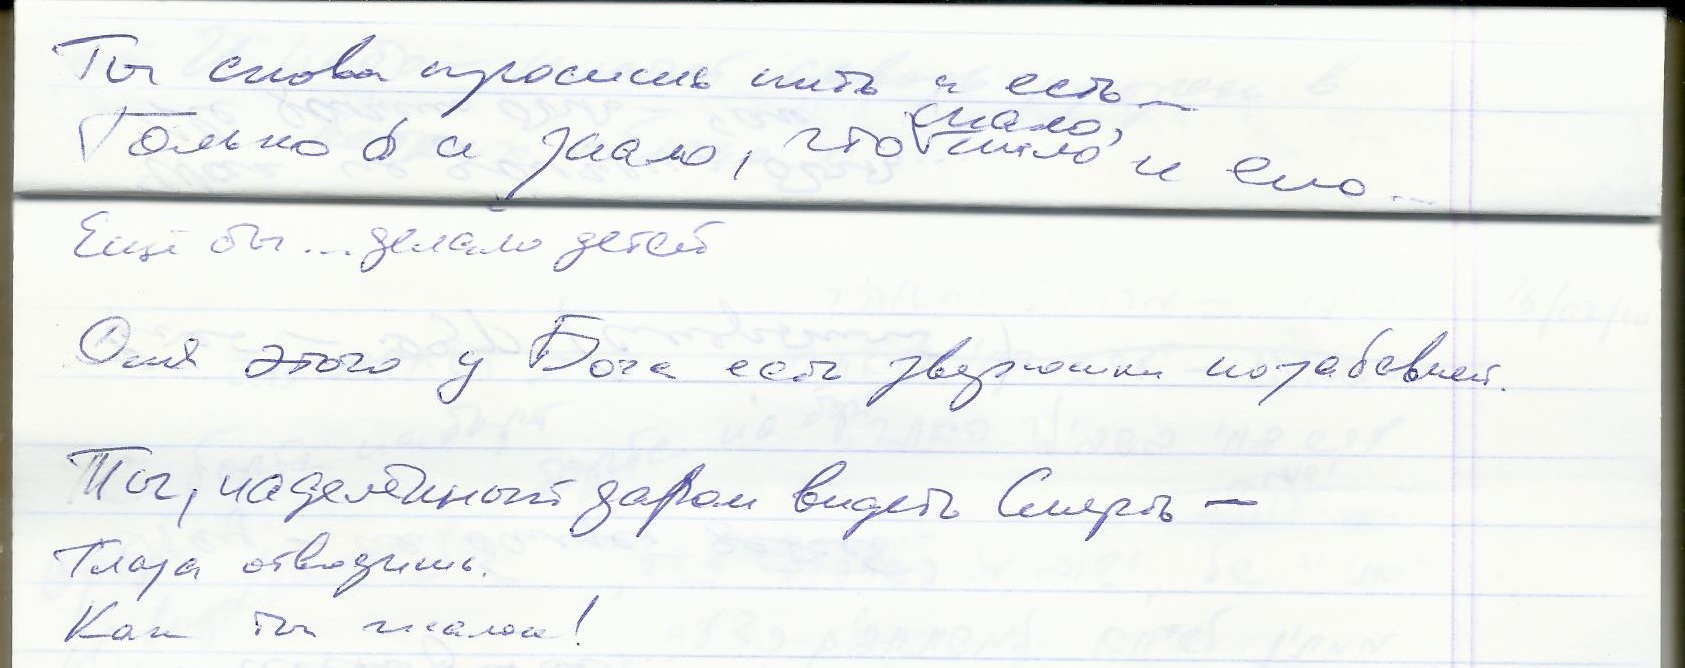 Ты снова просишь пить и есть –
Только б и знало, что спало, пило и ело...
Ещё бы ... делало детей
Для этого у Бога есть зверюшки позабавней.
Ты, наделённый даром видеть Смерть –
Глаза отводишь.
Как ты жалок!